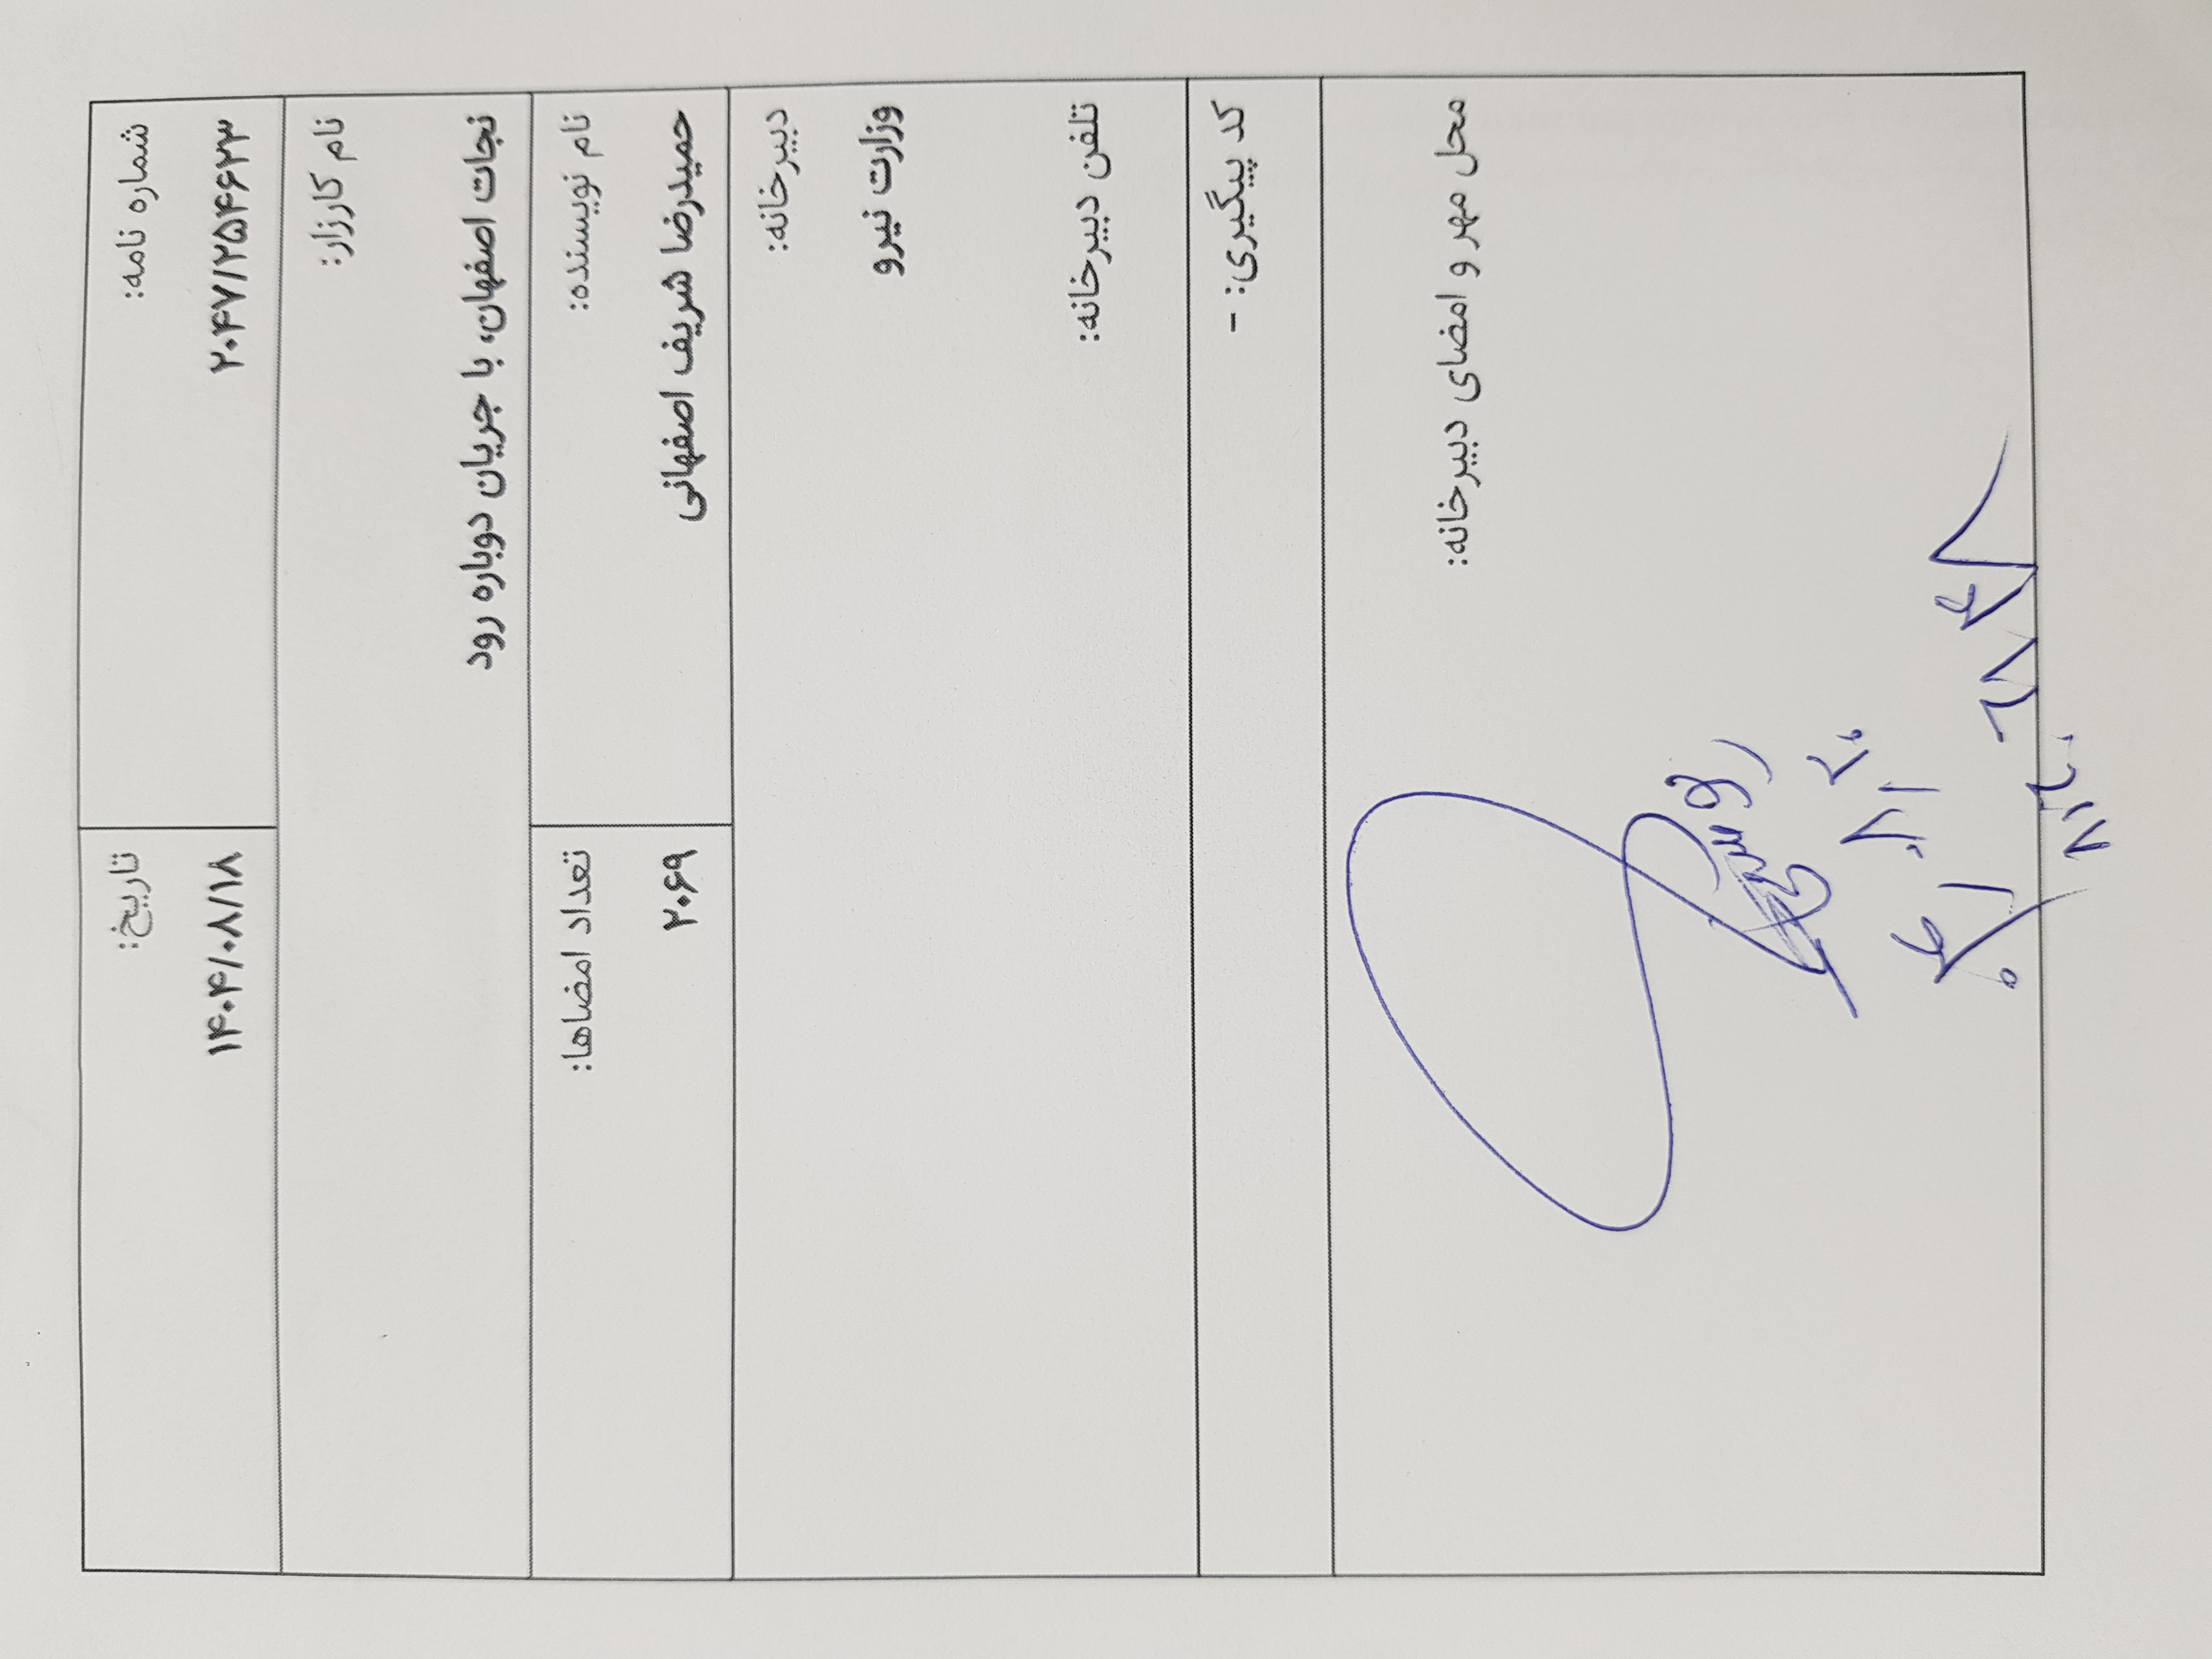 شماره نامه:
۲۰۴۷/۲۵۴۶۲۳
تاریخ:
۱۴۰۴/۰۸/۱۸
نام کارزار:
نجات اصفهان، با جریان دوباره رود
نام نویسنده:
حمیدرضا شریف اصفهانی
تعداد امضاها:
۲۰۶۹
دبیرخانه:
وزارت نیرو
تلفن دبیرخانه:
کد پیگیری: -
محل مهر و امضای دبیرخانه: